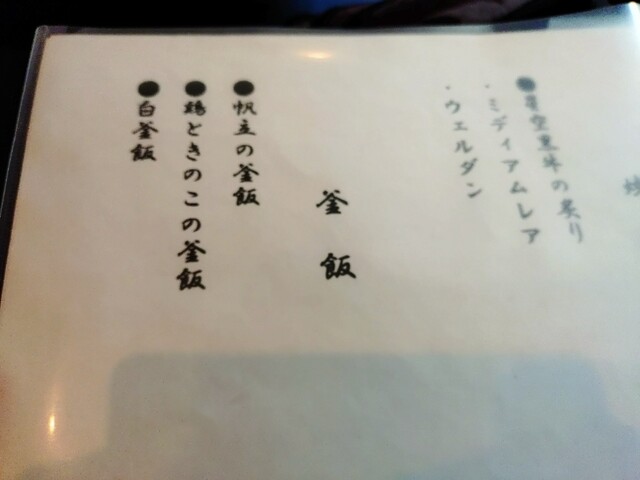 ●星空黒牛の炙り
・ミディアムレア
・ウェルダン
釜飯
●帆立の釜飯
●鶏ときのこの釜飯
●白釜飯